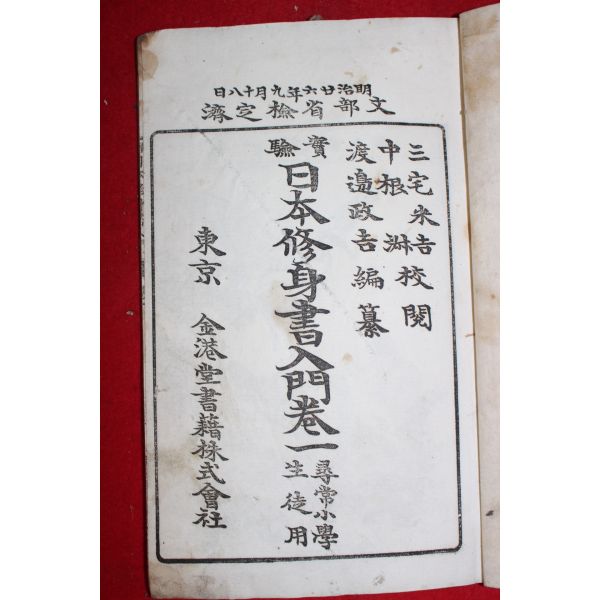 明治廿六年九月十八日
文部省檢定濟
三宅米吉校閲
中根淑
渡邉政吉編纂
實驗
日本修身書入門卷一
尋常小學
生徒用
東京 金港堂書籍株式會社